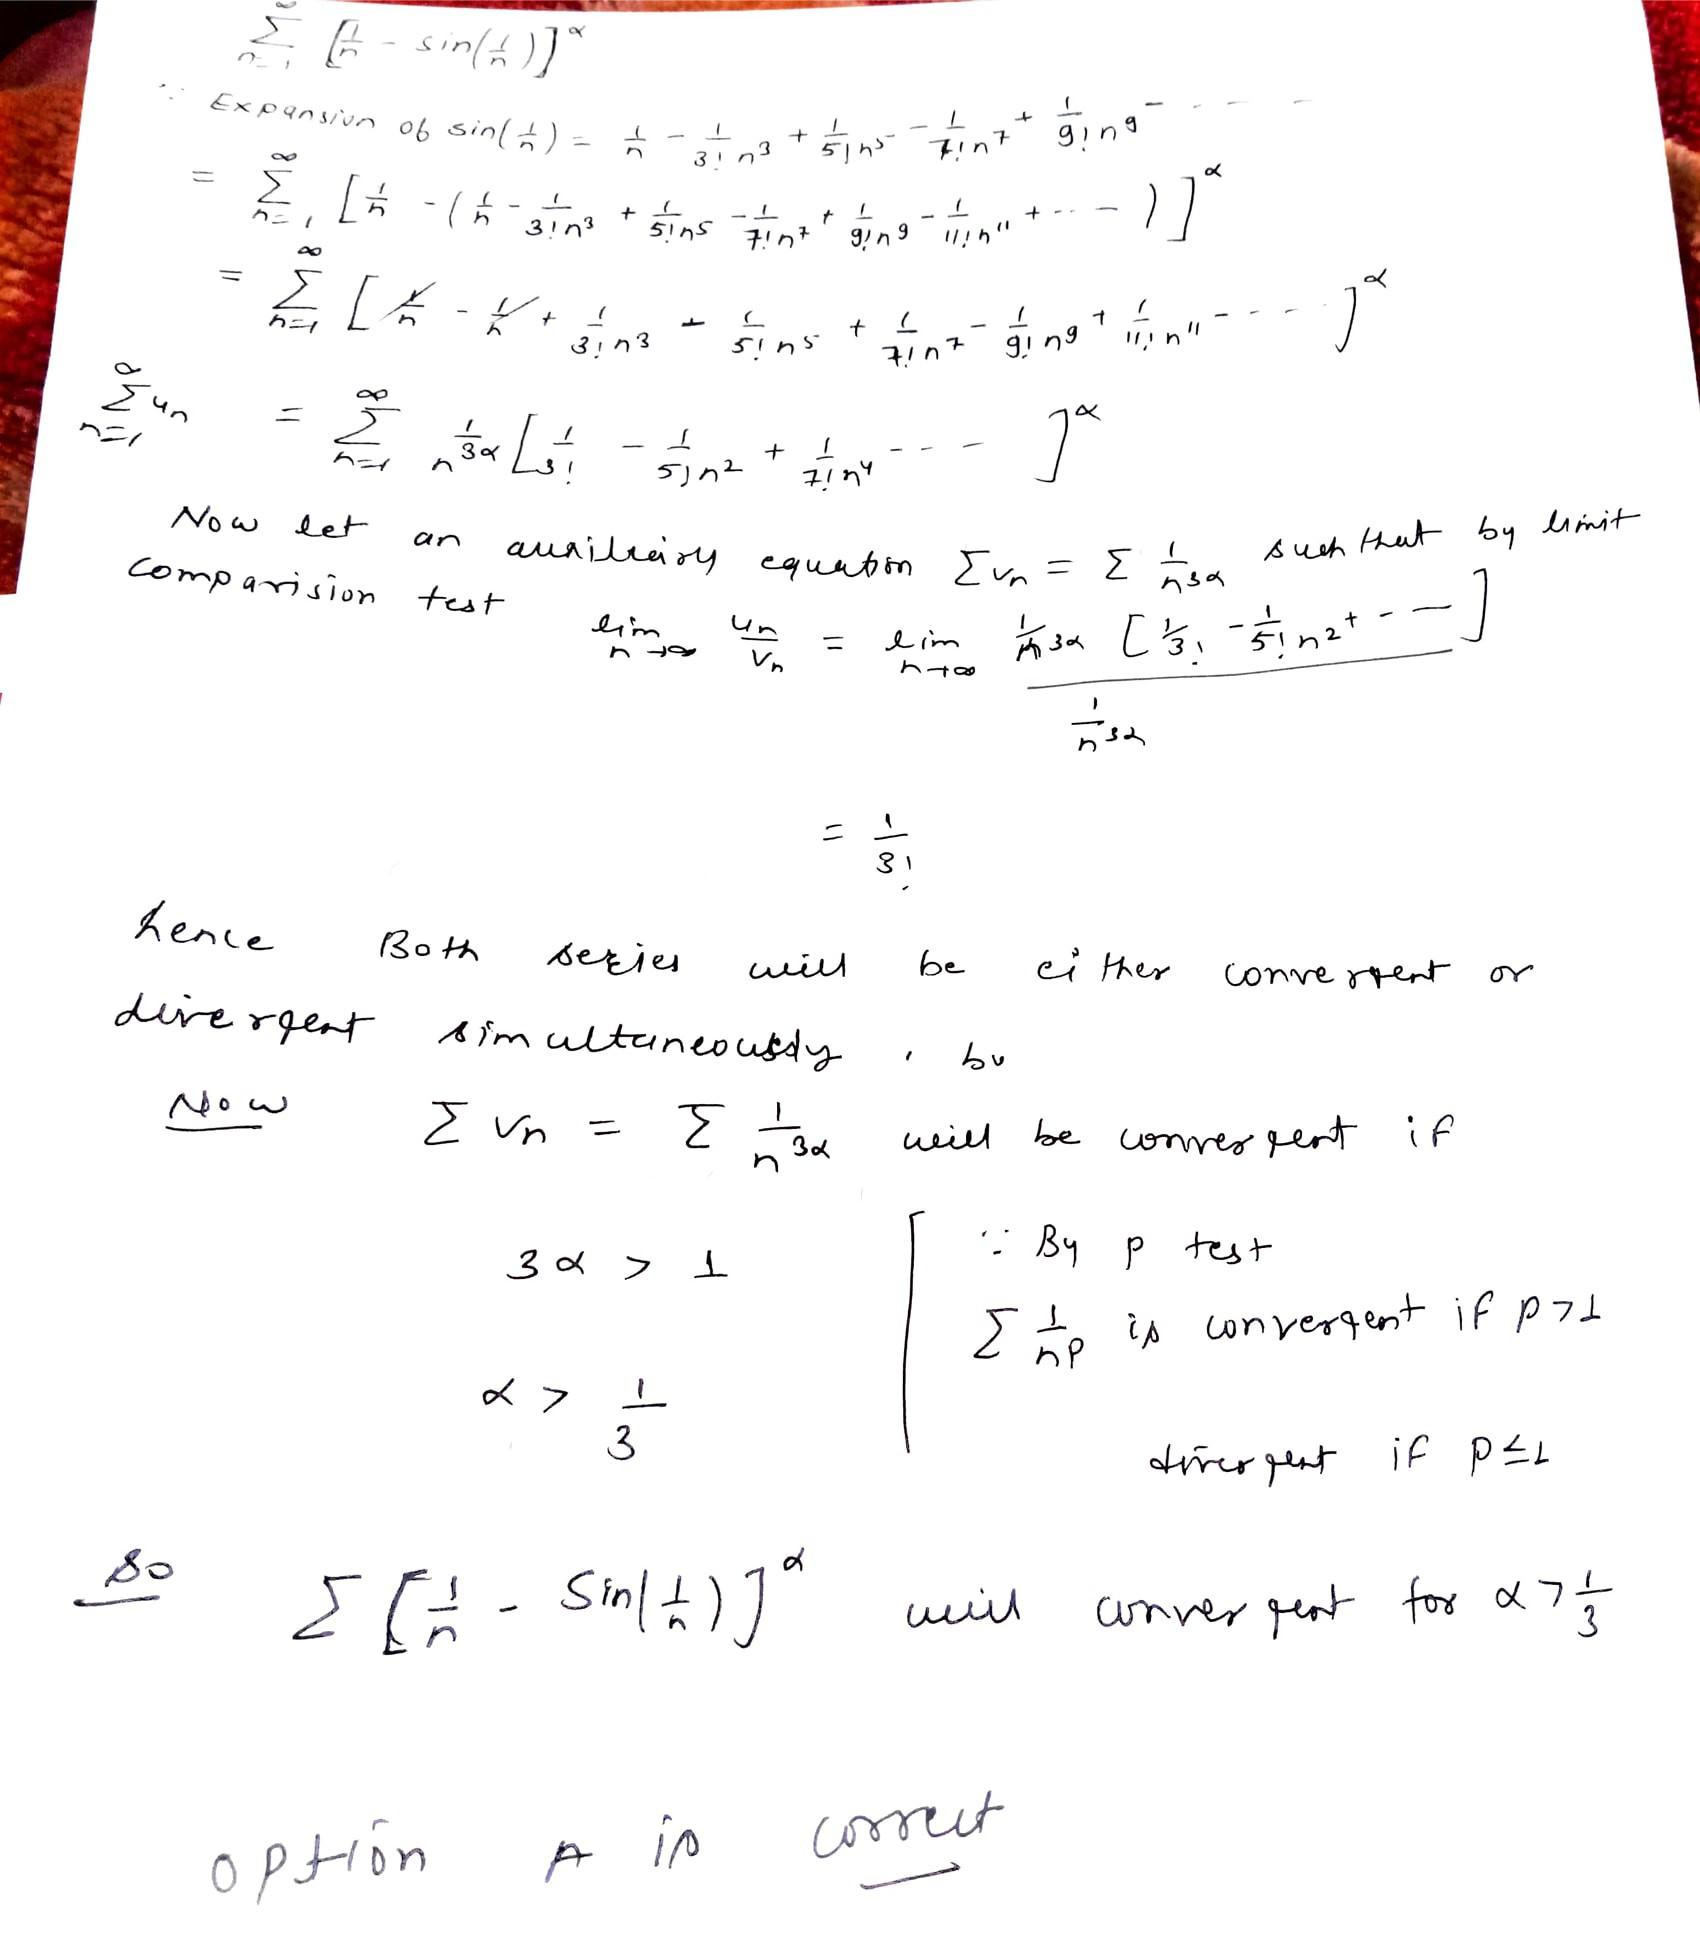 ∞
Σ [1/n - sin(1/n)]^α
n=1
∵ Expansion of sin(1/n) = 1/n - 1/3!n^3 + 1/5!n^5 - 1/7!n^7 + 1/9!n^9 - - - -
= ∞Σn=1 [1/n - (1/n - 1/3!n^3 + 1/5!n^5 - 1/7!n^7 + 1/9!n^9 - 1/11!n^11 + - - -)]^α
= ∞Σn=1 [1/n - 1/n + 1/3!n^3 - 1/5!n^5 + 1/7!n^7 - 1/9!n^9 + 1/11!n^11 - - - -]^α
∞Σn=1 un = ∞Σn=1 1/n^3α [1/3! - 1/5!n^2 + 1/7!n^4 - - - -]^α
Now let an auxilreiary equation Σvn = Σ 1/n^3α such that by limit
comparision test
lim n→∞ un/vn = lim n→∞ 1/n^3α [1/3! - 1/5!n^2 + - - -]
1/n^3α
= 1/3!
hence Both series will be either convergent or
divergent simultaneously , bu
Now Σ vn = Σ 1/n^3α will be convergent if
3α > 1
∵ By p test
Σ 1/n^p is convergent if p>1
α > 1/3
divergent if p≤1
So Σ [1/n - Sin(1/n)]^α will convergent for α > 1/3
option A is correct